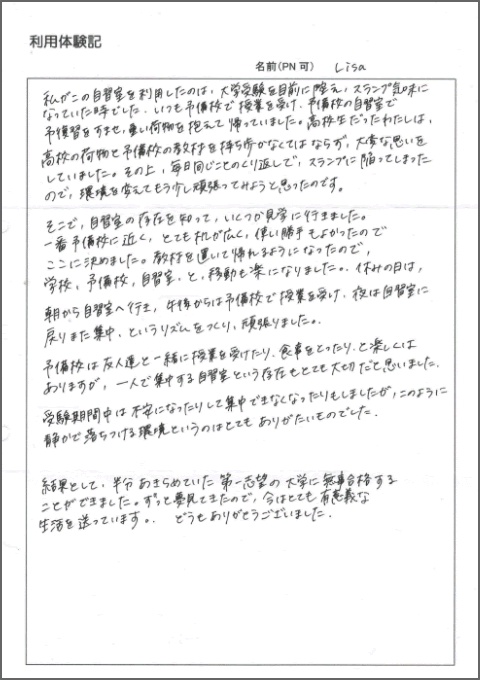 利用体験記
名前(PN可) Lisa
私がこの自習室を利用したのは、大学受験を目前に控え、スランプ気味に
なっていた時でした。いつも予備校で授業を受け、予備校の自習室で
予復習をすませ、重い荷物を抱えて帰っていました。高校生だったわたしは、
高校の荷物と予備校の教材を持ち歩かなくてはならず、大変な思いを
していました。その上、毎日同じことのくり返しで、スランプに陥ってしまった
ので、環境を変えてもう少し頑張ってみようと思ったのです。
そこで、自習室の存在を知って、いくつか見学に行きました。
一番予備校に近く、とても机が広く、使い勝手もよかったので
ここに決めました。教材を置いて帰れるようになったので、
学校、予備校、自習室、と、移動も楽になりました。休みの日は、
朝から自習室へ行き、午後からは予備校で授業を受け、夜は自習室に
戻りまた集中、というリズムをつくり、頑張りました。
予備校は友人達と一緒に授業を受けたり、食事をとったり、と楽しくは
ありますが、一人で集中する自習室という存在もとても大切だと思いました。
受験期間中は不安になったりして集中できなくなったりもしましたが、このように
静かで落ちつける環境というのはとてもありがたいものでした。
結果として、半分あきらめていた第一志望の大学に無事合格する
ことができました。ずっと夢見てきたので、今はとても有意義な
生活を送っています。 どうもありがとうございました。